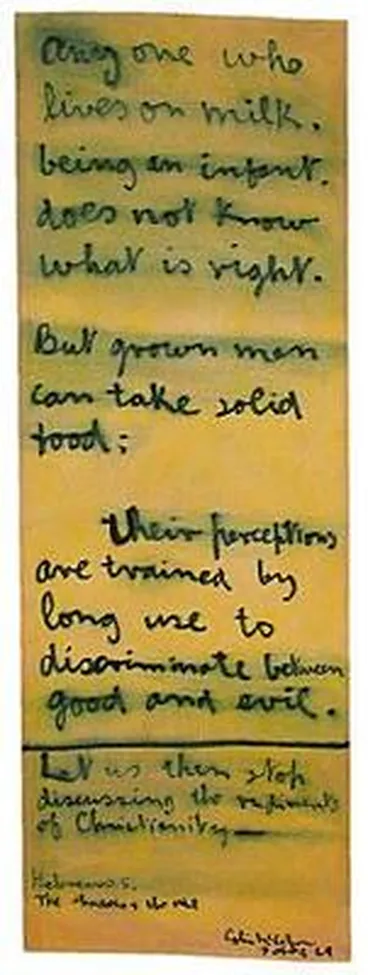 any one who
lives on milk.
being an infant.
does not know
what is right.
But grown men
can take solid
food;
their perceptions
are trained by
long use to
discriminate between
good and evil.
Let us then stop
discussing the rudiments
of Christianity
Hebrews 5.
The